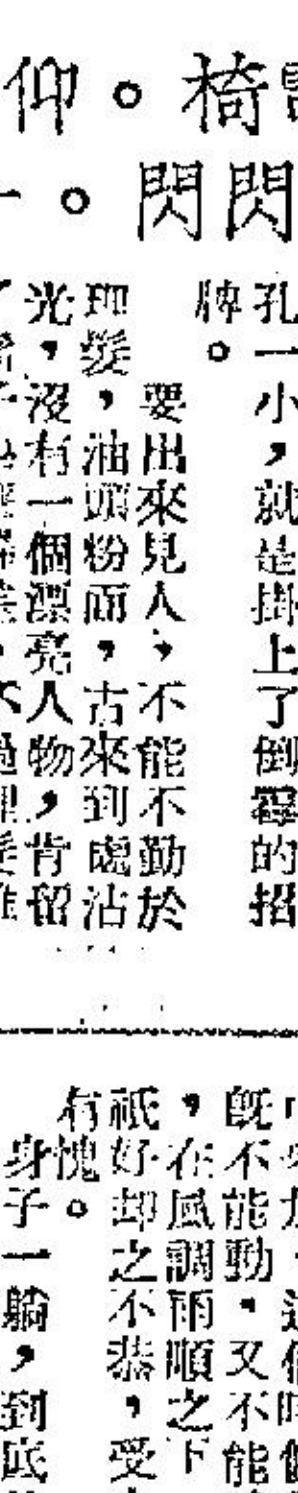 閃閃。
椅
仰。
孔一小，就是掛上了倒霉的招
牌。
要出來見人，不能不勤於
理髮，油頭粉面，古來到處沾
光，沒有一個漂亮人物，肯留
既不能動，又不能
，在風調雨順之下
祇好却之不恭，受
有愧。
身子一躺，到底